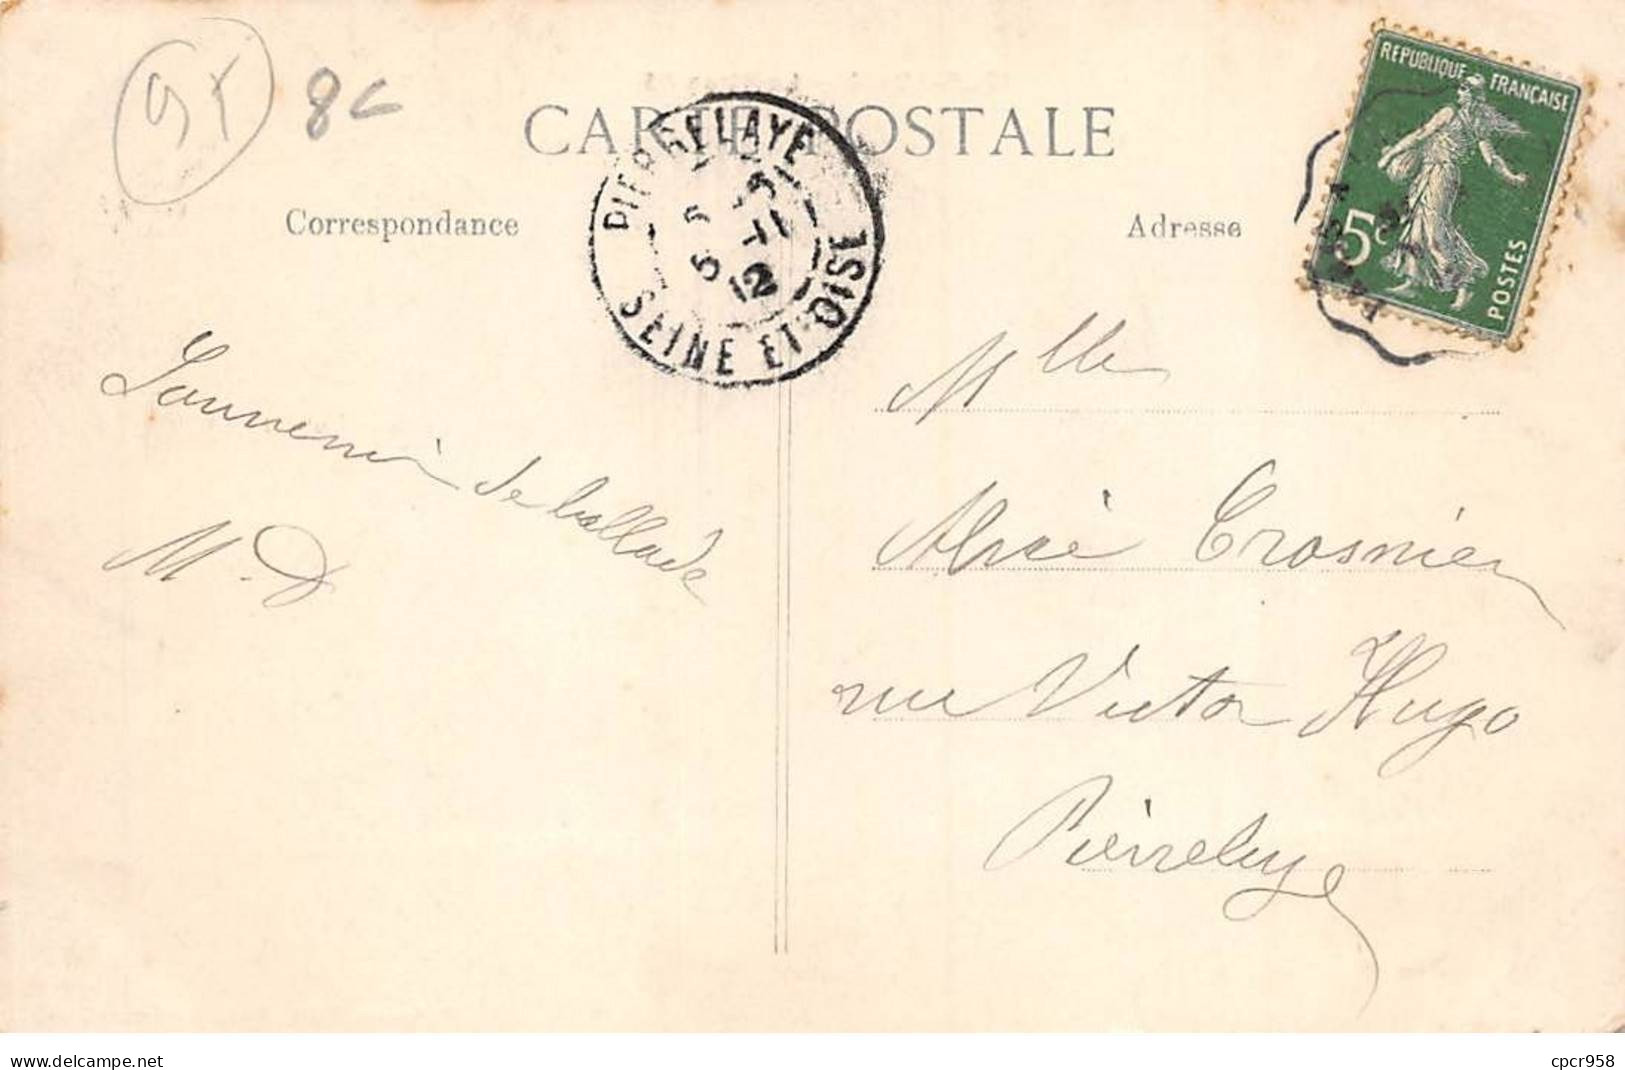 95
8€
CARTE POSTALE
Correspondance
Adresse
REPUBLIQUE FRANÇAISE
5c
POSTES
PIERRELAYE
5 -11
12
SEINE ET OISE
Souvenir de ballade
M. D
Mlle
Alice Crosnier
rue Victor Hugo
Pierrelaye
www.delcampe.net
cpcr958